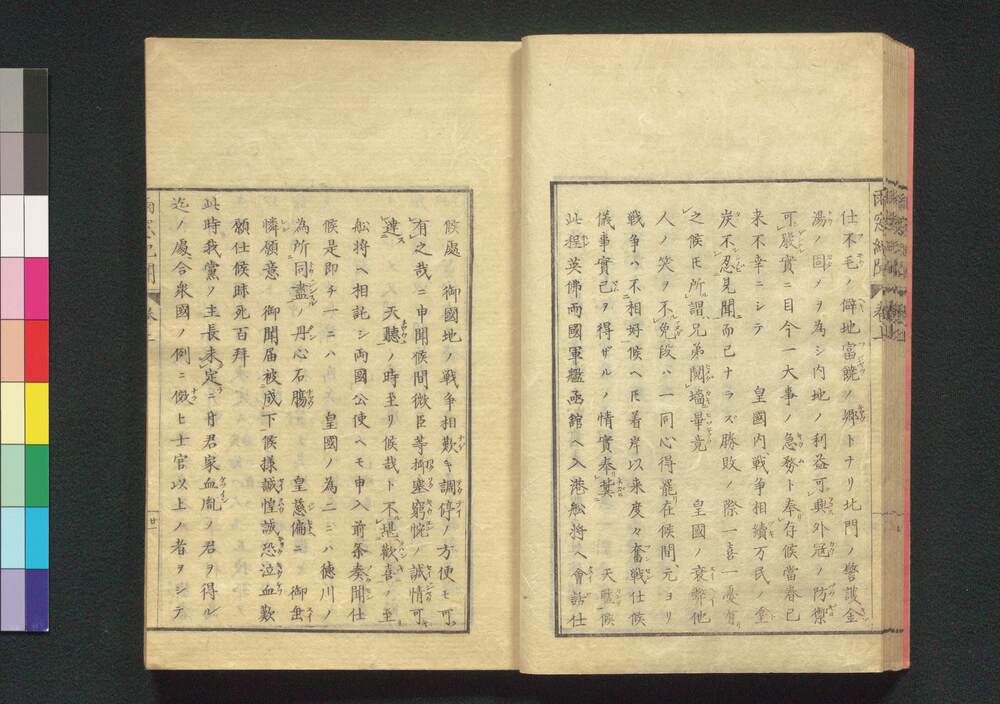 仕不毛ノ僻地富饒ノ郷トナリ北門ノ警護金
湯ノ固メヲ為シ内地ノ利益可興外冦ノ防禦
可嚴實ニ目今一大事ノ急務ト奉存候當春已
来不幸ニシテ 皇國内戦争相續万民ノ塗
炭不忍見聞而已ナラズ勝敗ノ際一喜一憂有
之候モ所謂兄弟鬩墻畢竟 皇國ノ衰弊他
人ノ笑ヲ不免段ハ一同心得罷在候間元ヨリ
戦争ハ不相好候ヘ𪜈着岸以来度々奮戦仕候
儀事實已ヲ得ザルノ情實奉冀 天聽候
此程英佛両國軍艦函館ヘ入港舩将ヘ會話仕
候處 御國地ノ戦争相歎キ調停ノ方便モ可
有之哉ニ申聞候間微臣等抑塞窮悗ノ誠情可
達 天聽ノ時至リ候哉ト不堪歡喜ノ至
舩将ヘ相託シ両國公使ヘモ申入前条奏聞仕
候是即チ一ニハ 皇國ノ為二ニハ徳川ノ
為所同盡ノ丹心石膓 皇慈偏ニ 御垂
憐願意 御聞届被成下候様誠惶誠恐泣血歎
願仕候昧死百拜
此時我黨ノ主長未定ニ付君家血胤ノ君ヲ得ル
迄ノ處合衆國ノ例ニ傚ヒ士官以上ノ者ヲシテ
雨窓紀聞 巻之
廿